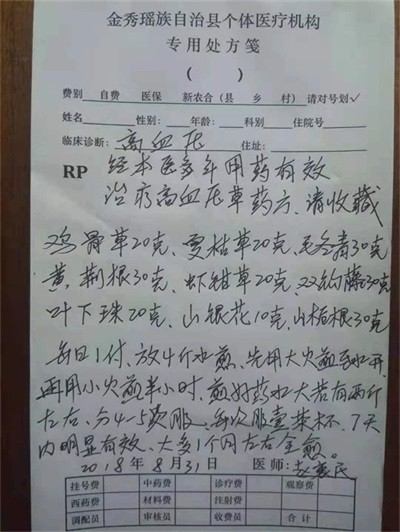 金秀瑶族自治县个体医疗机构
专用处方笺
( )
费别 自费 医保 新农合(县 乡 村) 请对号划✓
姓名 性别: 年龄: 科别 住院号
临床诊断: 高血压 住址:
RP 经本医多年用药有效
治疗高血压草药方、请收藏
鸡骨草20克、夏枯草20克、毛冬青30克
黄荆根30克、虾钳草20克、双钩藤30克
叶下珠20克、山银花10克、山栀根30克
每日1付、放4斤水煎、先用大火煎至水开
再用小火煎半小时、煎好药水大若有两斤
左右、分4-5次服、每次服壹茶杯、7天
内明显有效、大多1个月左右全愈。
2018年8月31日 医师:
挂号费 中药费 诊疗费 观察费
西药费 材料费 注射费
调配员 审核员 收费员 合计